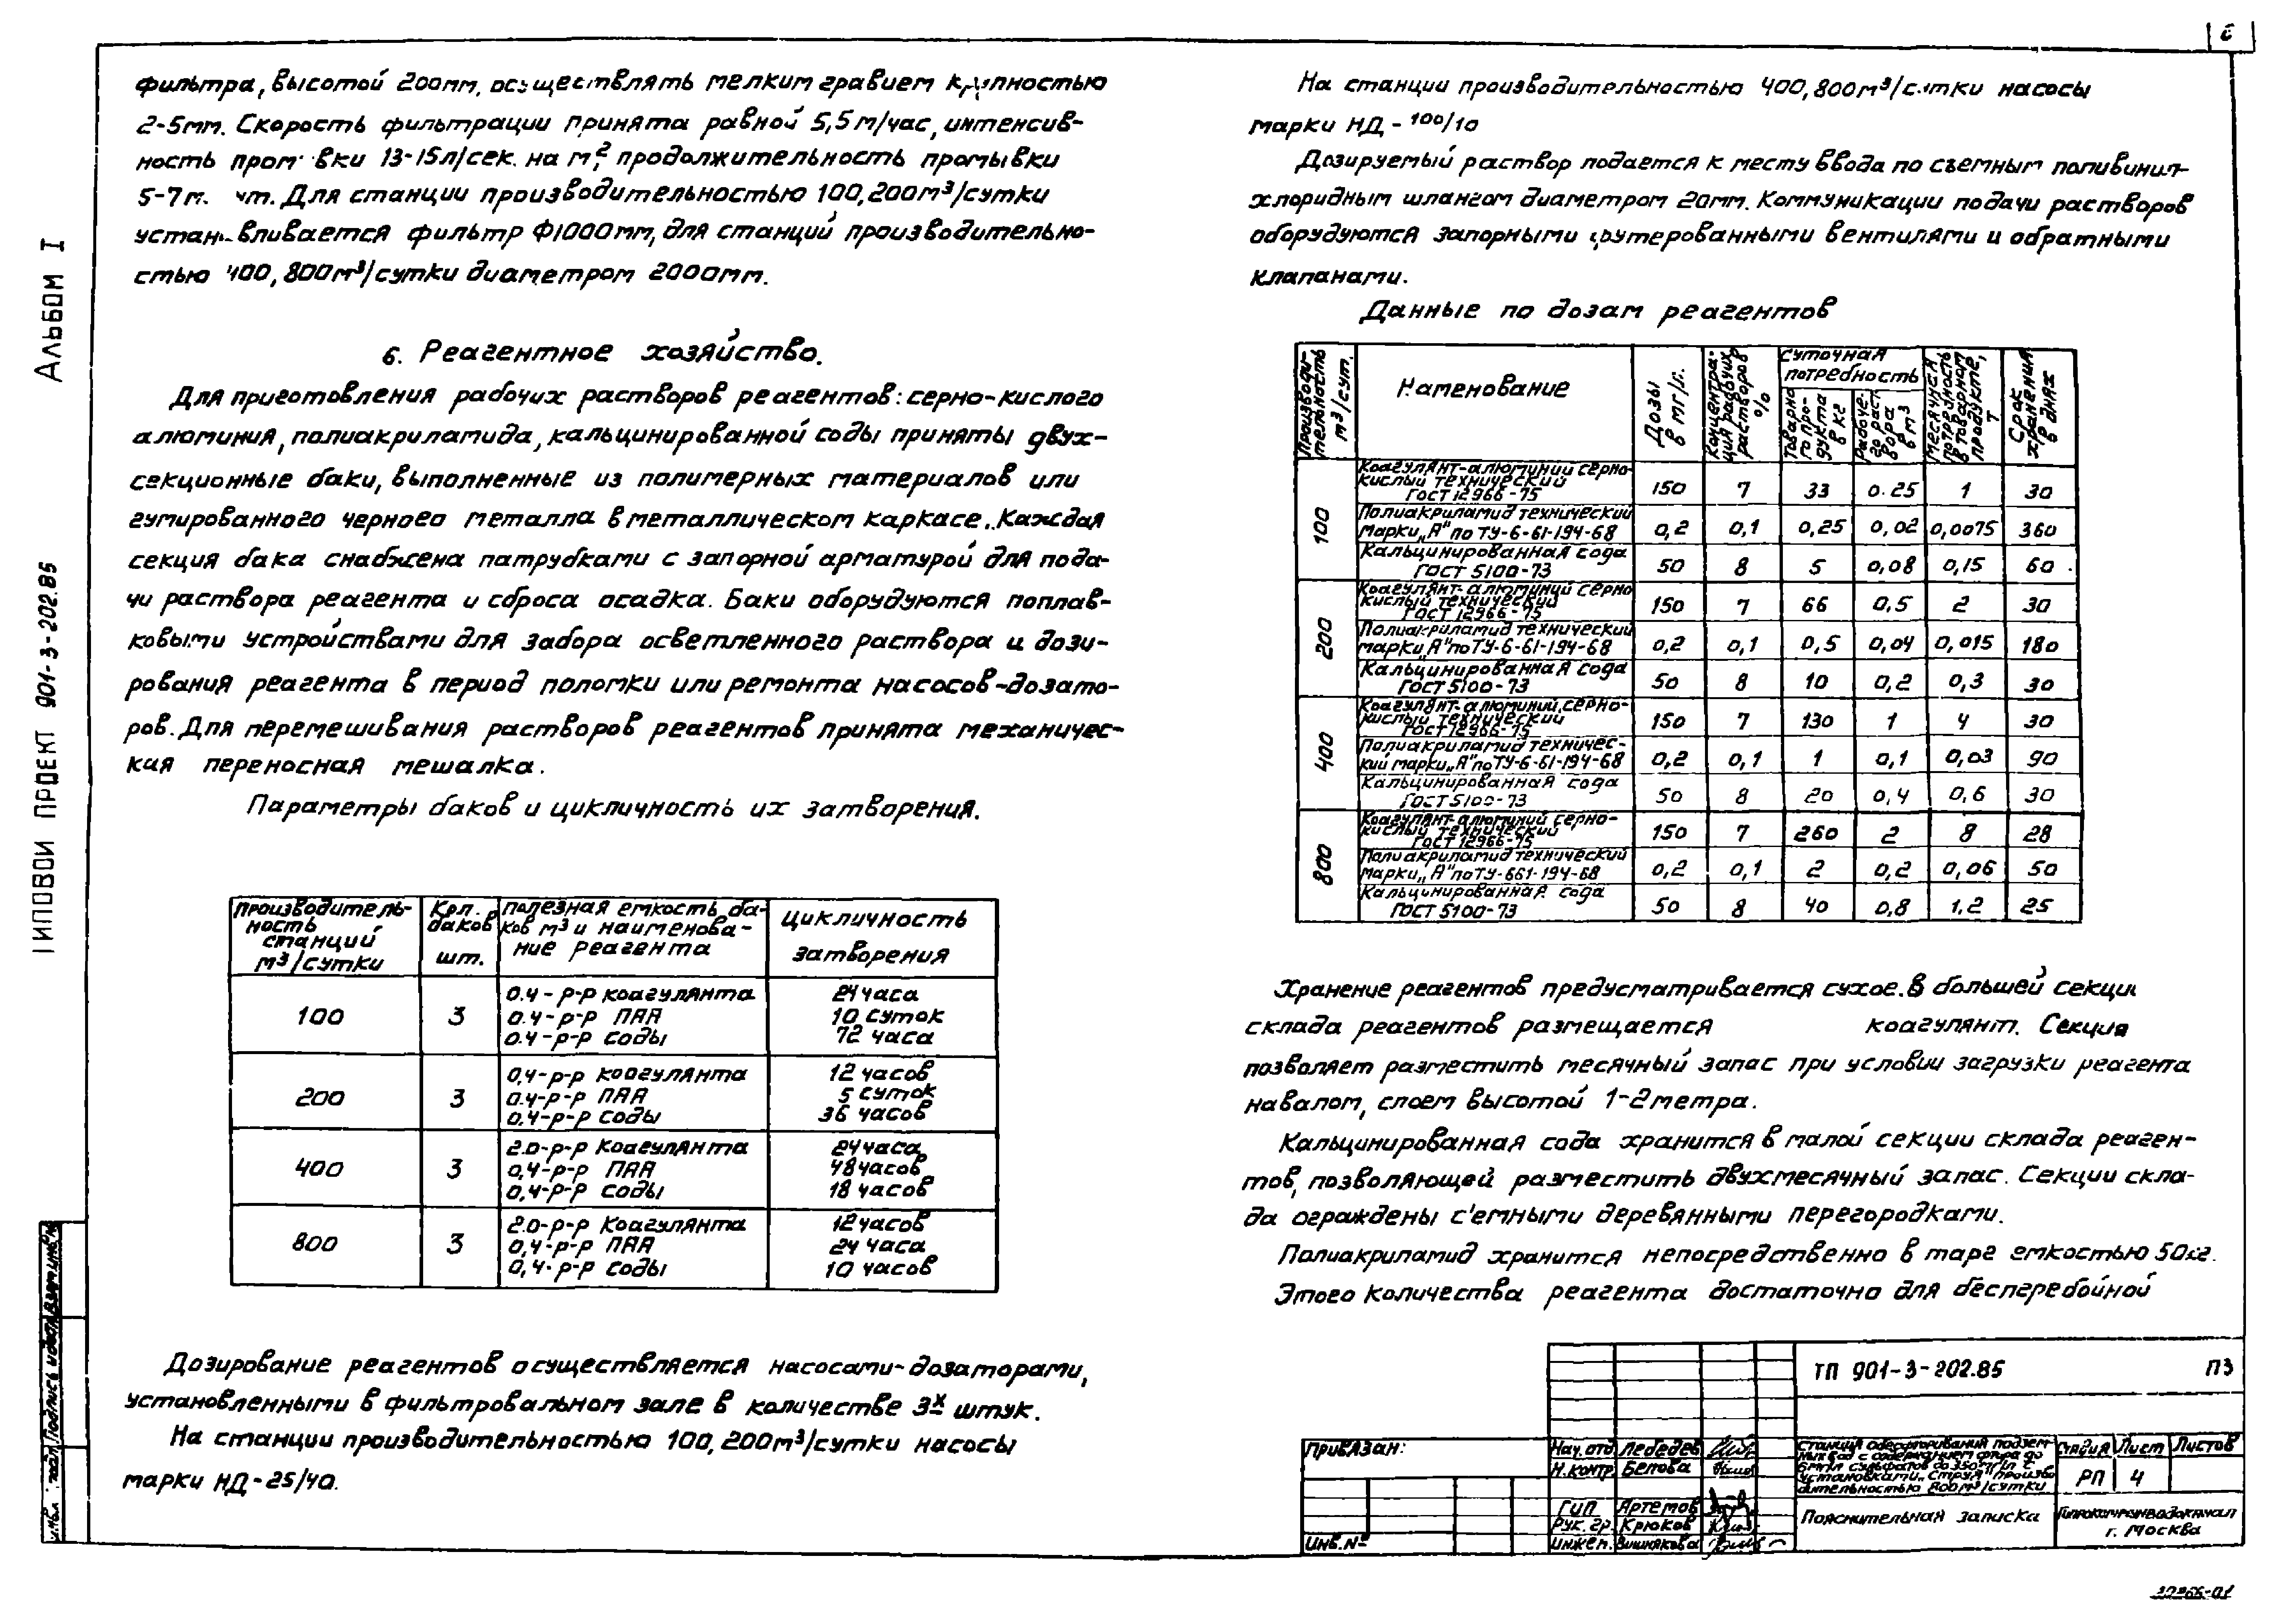 6
Альбом I
Типовой проект 901-3-202.85
фильтра, высотой 200мм, осуществлять мелким гравием крупностью
2-5мм. Скорость фильтрации принята равной 5,5 м/час, интенсив-
ность пром вки 13-15л/сек. на м², продолжительность промывки
5-7м. ут. Для станции производительностью 100,200м³/сутки
устан вливается фильтр Ф1000мм, для станций производительно-
стью 400,800м³/сутки диаметром 2000мм.
6. Реагентное хозяйство.
Для приготовления рабочих растворов реагентов: серно-кислого
алюминия, полиакриламида, кальцинированной соды приняты двух-
секционные баки, выполненные из полимерных материалов или
гумированного черного металла в металлическом каркасе. Каждая
секция бака снабжена патрубками с запорной арматурой для пода-
чи раствора реагента и сброса осадка. Баки оборудуются поплав-
ковыми устройствами для забора осветленного раствора и дози-
рования реагента в период поломки или ремонта насосов-дозато-
ров. Для перемешивания растворов реагентов принята механичес-
кая переносная мешалка.
Параметры баков и цикличность их затворения.
Производитель-ность станций м³/сутки | Кол. баков шт. | Полезная емкость ба-ков м³ и наименова-ние реагента | Цикличность затворения
100 | 3 | 0.4-р-р коагулянта | 24 часа
0.4-р-р ПАА | 10 суток
0.4-р-р соды | 72 часа
200 | 3 | 0,4-р-р коагулянта | 12 часов
0.4-р-р ПАА | 5 суток
0,4-р-р соды | 36 часов
400 | 3 | 2.0-р-р коагулянта | 24 часа
0,4-р-р ПАА | 48 часов
0,4-р-р соды | 18 часов
800 | 3 | 2.0-р-р коагулянта | 12 часов
0,4-р-р ПАА | 24 часа
0,4-р-р соды | 10 часов
Дозирование реагентов осуществляется насосами-дозаторами,
установленными в фильтровальном зале в количестве 3х штук.
На станции производительностью 100,200м³/сутки насосы
марки НД-25/40.
На станции производительностью 400,800м³/сутки насосы
марки НД-100/10
Дозируемый раствор подается к месту ввода по съемным поливинил-
хлоридным шлангом диаметром 20мм. Коммуникации подачи растворов
оборудуются запорными футерованными вентилями и обратными
клапанами.
Данные по дозам реагентов
Производи-тельность м³/сут. | Наменование | Дозы в мг/л. | Концентра-ция рабочих растворов % | Суточная потребность | Товарно-го про-дукта в кг | Рабоче-го раст-вора в м³ | Месячная потребность в товарном продукте, т | Срок хранения в днях
100 | Коагулянт-алюминий серно-кислый технический ГОСТ 12966-75 | 150 | 7 | 33 | 0.25 | 1 | 30
Полиакриламид технический марки „А" по ТУ-6-61-194-68 | 0,2 | 0,1 | 0,25 | 0,02 | 0,0075 | 360
Кальцинированная сода ГОСТ 5100-73 | 50 | 8 | 5 | 0,08 | 0,15 | 60
200 | Коагулянт-алюминий серно-кислый технический ГОСТ 12966-75 | 150 | 7 | 66 | 0,5 | 2 | 30
Полиакриламид технический марки „А" по ТУ-6-61-194-68 | 0,2 | 0,1 | 0,5 | 0,04 | 0,015 | 180
Кальцинированная сода ГОСТ 5100-73 | 50 | 8 | 10 | 0,2 | 0,3 | 30
400 | Коагулянт-алюминий серно-кислый технический ГОСТ 12966-75 | 150 | 7 | 130 | 1 | 4 | 30
Полиакриламид техничес-кий марки „А" по ТУ-6-61-194-68 | 0,2 | 0,1 | 1 | 0,1 | 0,03 | 90
Кальцинированная сода ГОСТ 5100-73 | 50 | 8 | 20 | 0,4 | 0,6 | 30
800 | Коагулянт-алюминий серно-кислый технический ГОСТ 12966-75 | 150 | 7 | 260 | 2 | 8 | 28
Полиакриламид технический марки „А" по ТУ-661-194-68 | 0,2 | 0,1 | 2 | 0,2 | 0,06 | 50
Кальцинированная сода ГОСТ 5100-73 | 50 | 8 | 40 | 0,8 | 1,2 | 25
Хранение реагентов предусматривается сухое. В большей секции
склада реагентов размещается коагулянт. Секция
позволяет разместить месячный запас при условии загрузки реагента
навалом, слоем высотой 1-2 метра.
Кальцинированная сода хранится в малой секции склада реаген-
тов, позволяющей разместить двухмесячный запас. Секции скла-
да ограждены с'емными деревянными перегородками.
Полиакриламид хранится непосредственно в таре емкостью 50кг.
Этого количества реагента достаточно для бесперебойной
ТП 901-3-202.85 ПЗ
Привязан:
Инв.№
Нач.отд Лебедев
Н.контр Белова
ГИП Артемов
Рук.гр. Крюков
Инжен. Вишнякова
Станция обесфторивания подзем-
ных вод с содержанием фтора до
6мг/л сульфатов до 350мг/л с
установками „Струя" произво
дительностью 800м³/сутки
Стадия Лист Листов
РП 4
Пояснительная записка
Гипрокоммунводоканал
г. Москва
Подпись и дата Взам.инв.№
20266-01